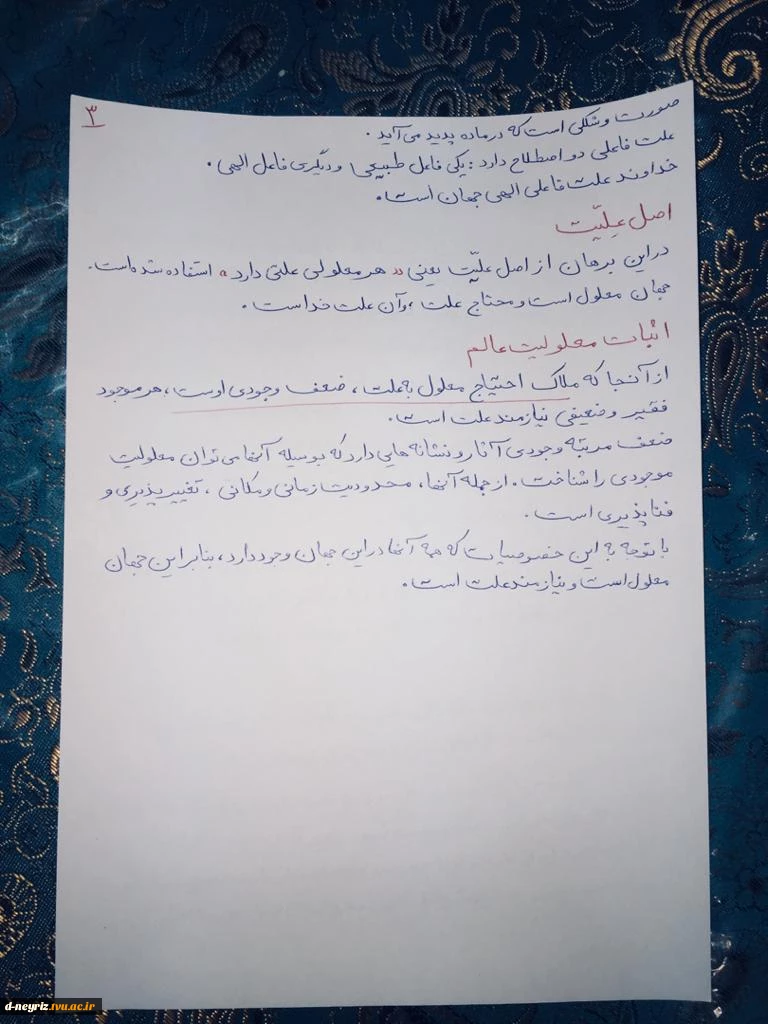 ۳
صورت و شکلی است که در ماده پدید می آید.
علت فاعلی دو اصطلاح دارد: یکی فاعل طبیعی و دیگری فاعل الهی.
خداوند علت فاعلی الهی جهان است.
اصل علیّت
در این برهان از اصل علیّت یعنی «هر معلولی علتی دارد» استفاده شده است.
جهان معلول است و محتاج علت، و آن علت خداست.
اثبات معلولیت عالم
از آنجا که ملاک احتیاج معلول به علت، ضعف وجودی اوست، هر موجود
فقیر و ضعیفی نیازمند علت است.
ضعف مرتبه وجودی آثار و نشانه هایی دارد که بوسیله آنها می توان معلولیت
موجودی را شناخت. از جمله آنها، محدودیت زمانی و مکانی، تغییرپذیری و
فناپذیری است.
با توجه به این خصوصیات که همه آنها در این جهان وجود دارد، بنابراین جهان
معلول است و نیازمند علت است.
d-neyriz.tvu.ac.ir